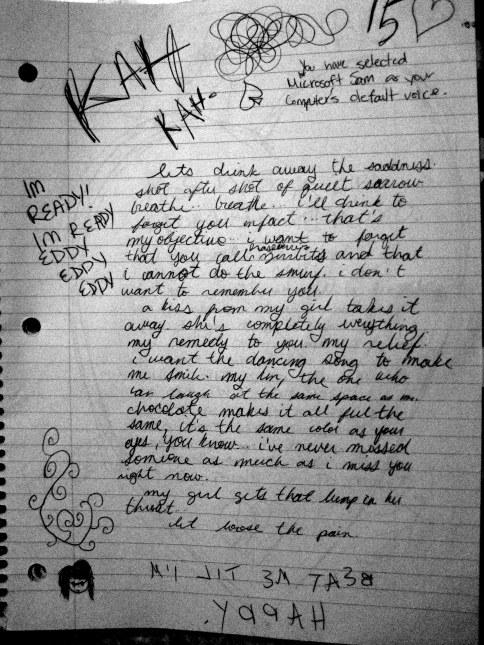 KAH
KAH.
15
You have selected
Microsoft Sam as your
Computers default voice.
IM
READY!
IM READY
EDDY
EDDY
EDDY
lets drink away the saddness.
shot after shot of quiet sorrow
breathe.. breathe... i'll drink to
forget you infact... that's
my objective... i want to forget
that you call and that
i cannot do the smirf. i don't
want to remember you.
a kiss from my girl takes it
away. she's completely everything
my remedy to you. my relief.
i want the dancing song to make
me smile. my the one who
can laugh at the same space as me.
chocolate makes it all feel the
same, it's the same color as your
eyes, you know... i've never missed
someone as much as i miss you
right now.
my girl gets that lump in her
throat...
let loose the pain.
BEAT ME TIL I'M
HAPPY.